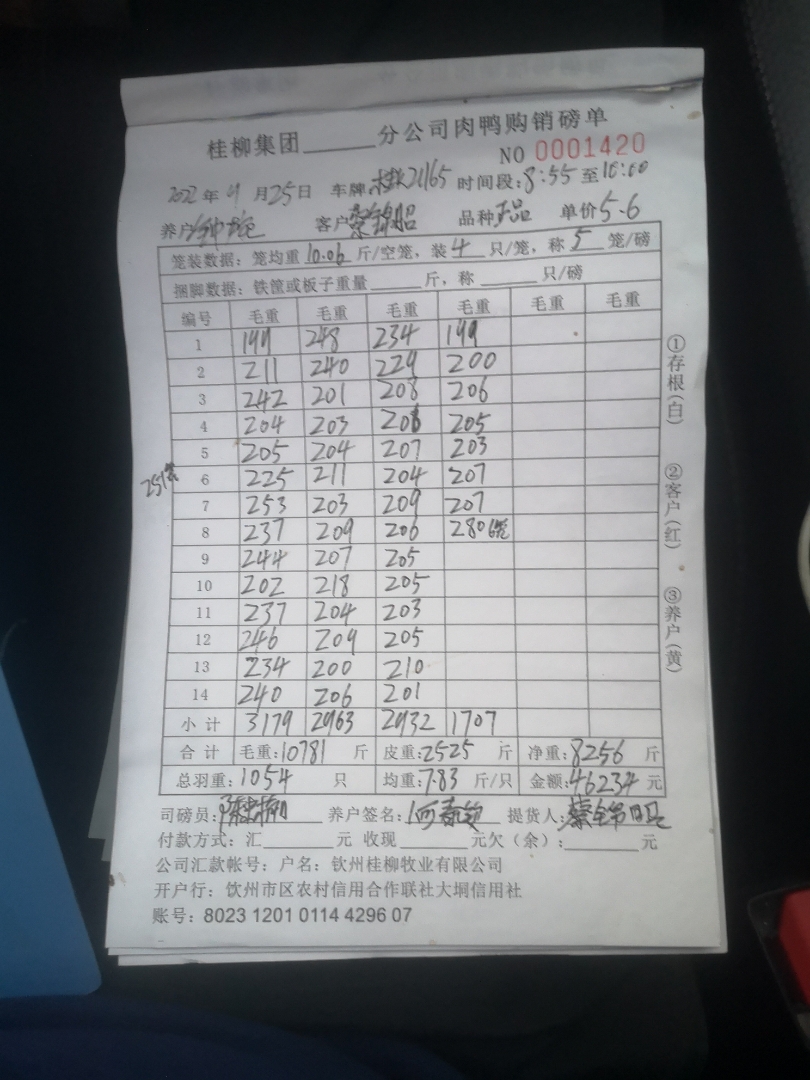 桂柳集团______分公司肉鸭购销磅单
NO 0001420
2022年9月25日 车牌 21165 时间段:8:55至10:00
养户 客户蔡锦昭 品种正品 单价5.6
笼装数据:笼均重10.06斤/空笼,装4只/笼,称5笼/磅
捆脚数据:铁筐或板子重量______斤,称______只/磅
编号 毛重 毛重 毛重 毛重 毛重 毛重
1 199 248 234 199
2 211 240 229 200
3 242 201 208 206
4 204 203 206 205
5 205 204 207 203
6 225 211 204 207
7 253 203 209 207
8 237 209 206 280 6笼
9 244 207 205
10 202 218 205
11 237 204 203
12 246 209 205
13 234 200 210
14 240 206 201
小计 3179 2963 2932 1707
合计 毛重:10781斤 皮重:2525斤 净重:8256斤
总羽重:1054只 均重:7.83斤/只 金额:46234元
司磅员: 养户签名: 提货人:蔡锦昭
付款方式:汇______元 收现______元欠(余):______元
公司汇款帐号:户名:钦州桂柳牧业有限公司
开户行:钦州市区农村信用合作联社大垌信用社
账号:8023 1201 0114 4296 07
251笼
①存根(白)
②客户(红)
③养户(黄)